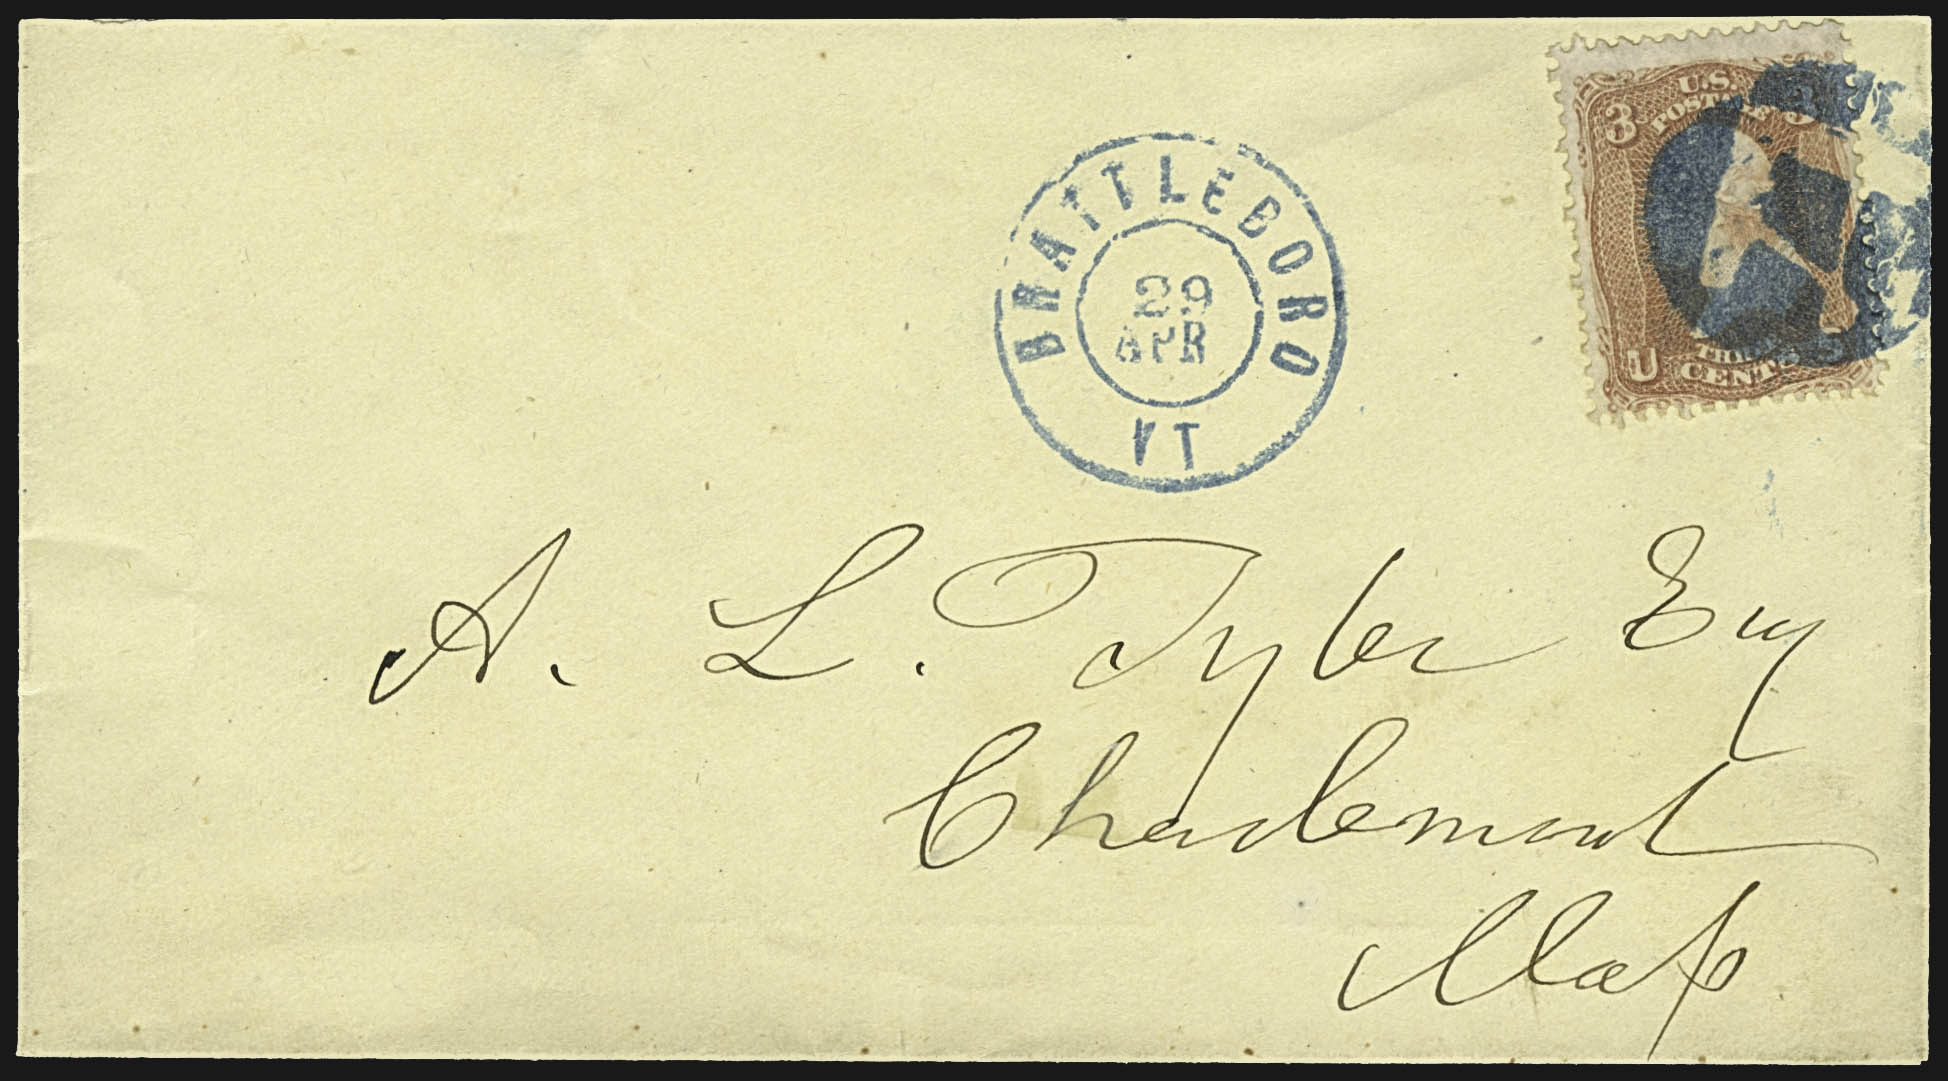 U.S.
POSTAGE
3 3
BRATTLEBORO
29
APR
VT
U
THREE
CENTS
A. L. Tyler Esq
Charlemont
Mass